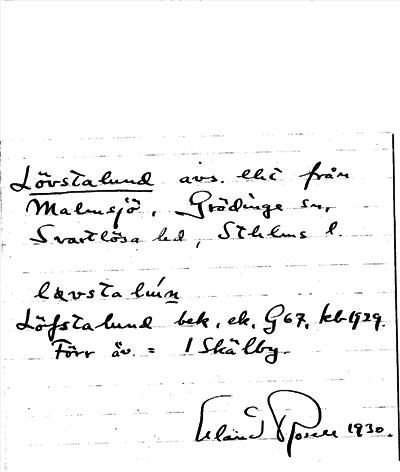 Lövstalund avs. lht från
Malmsjö, Grödinge sn,
Svartlösa hd, Sthlms l.
Löfstalund bek. ek. G67. kb 1929.
Förr äv. = 1 Skälby.
Erland Rosell 1930.